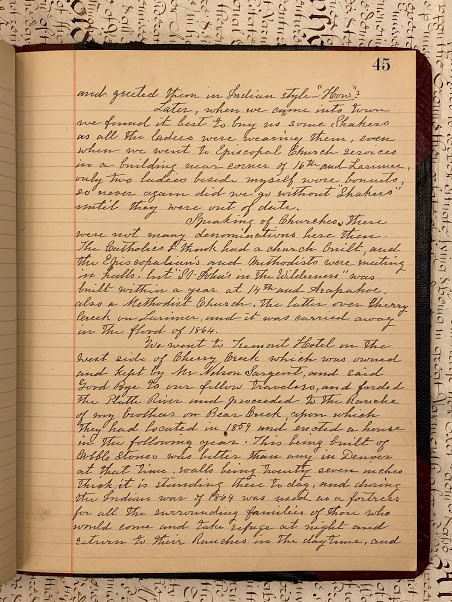 45
and greeted them in Indian style "How"?
Later, when we came into town
we found it best to buy us some Shakers
as all the ladies were wearing them, even
when we went to Episcopal Church services
in a building near corner of 16th and Larimer,
only two ladies beside myself wore bonnets,
so never again did we go without "Shakers"
until they were out of date.
Speaking of Churches, there
were not many denominations here then.
The Catholics I think had a church built, and
the Episcopalians and Methodists were meeting
in halls, but "St. John's in the Wilderness" was
built within a year at 14th and Arapahoe,
also a Methodist Church, the latter over Cherry
Creek on Larimer, and it was carried away
in the flood of 1864.
We went to Tremont Hotel on the
West side of Cherry Creek which was owned
and kept by Mr. Nelson Sargent, and said
Good Bye to our fellow Travelers, and forded
the Platte River and proceeded to the Ranche
of my brothers on Bear Creek, upon which
they had located in 1859 and erected a house
in the following year. This being built of
Cobble Stones was better than any in Denver
at that time, walls being twenty seven inches
thick it is standing there to day, and during
the Indian war of 1864 was used as a fortress
for all the surrounding families of those who
would come and take refuge at night and
return to their Ranches in the daytime, and